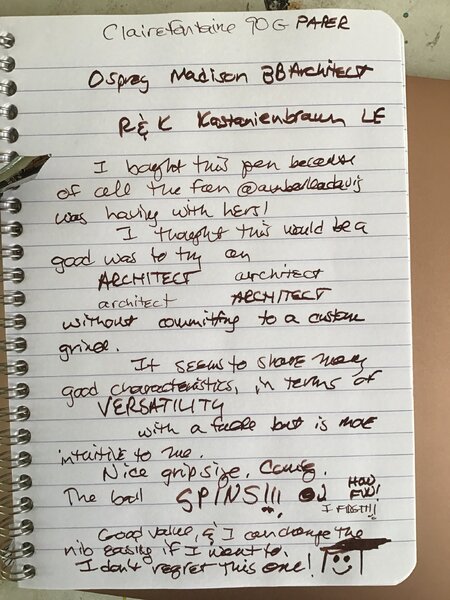 Clairefontaine 90G PAPER
Osprey Madison BB Architect
R&K Kastanienbraun LE
I bought this pen because
of all the fun @amberleadavis
was having with hers!
I thought this would be a
good was to try an
ARCHITECT architect
architect ARCHITECT
without committing to a custom
grind.
It seems to share many
good characteristics, in terms of
VERSATILITY
with a fude but is more
intuitive to me.
Nice grip size. Comfy.
The ball SPINS!!! HOW
FUN!
I FIDGET!!!
Good value, & I can change the
nib easily if I want to.
I don't regret this one!